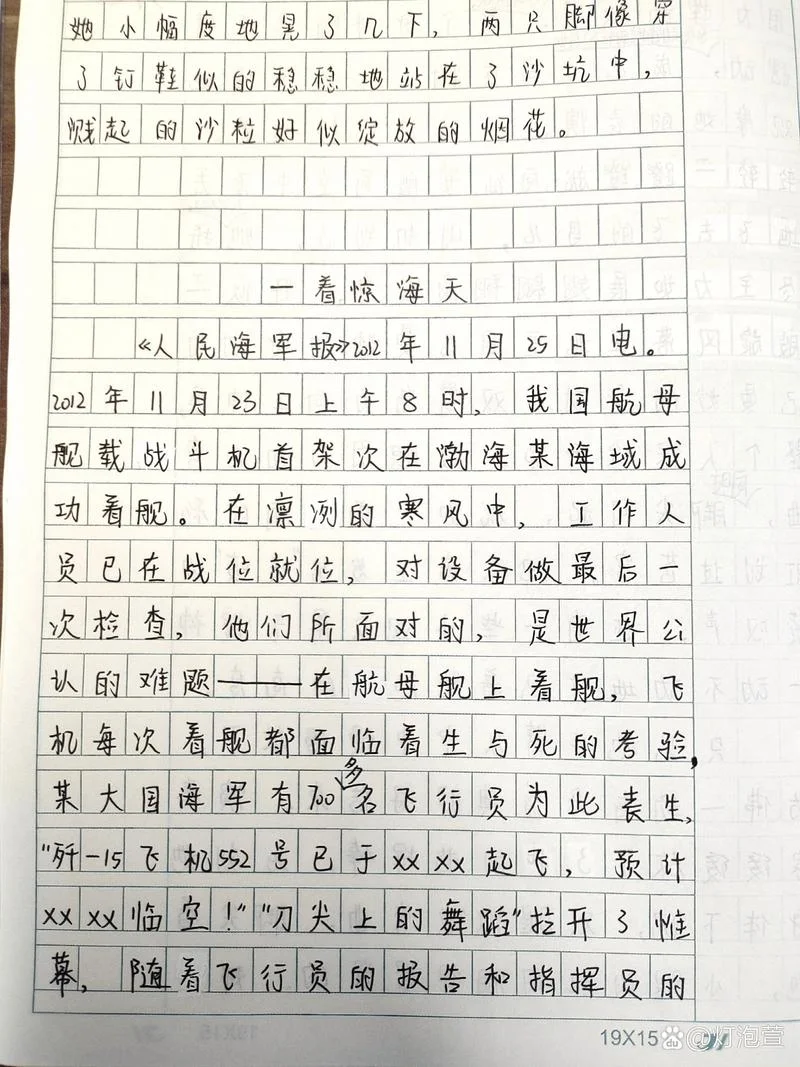 她小幅度地晃了几下,两只脚像穿
了钉鞋似的稳稳地站在了沙坑中,
溅起的沙粒好似绽放的烟花。
一着惊海天
《人民海军报》2012年11月25日电。
2012年11月23日上午8时,我国航母
舰载战斗机首架次在渤海某海域成
功着舰。在凛冽的寒风中,工作人
员已在战位就位,对设备做最后一
次检查,他们所面对的,是世界公
认的难题——在航母舰上着舰,飞
机每次着舰都面临着生与死的考验,
某大国海军有700多名飞行员为此丧生,
“歼-15飞机552号已于xx xx起飞,预计
xx xx临空!”“刀尖上的舞蹈”拉开了帷
幕,随着飞行员的报告和指挥员的
19X15
31
@灯泡萱